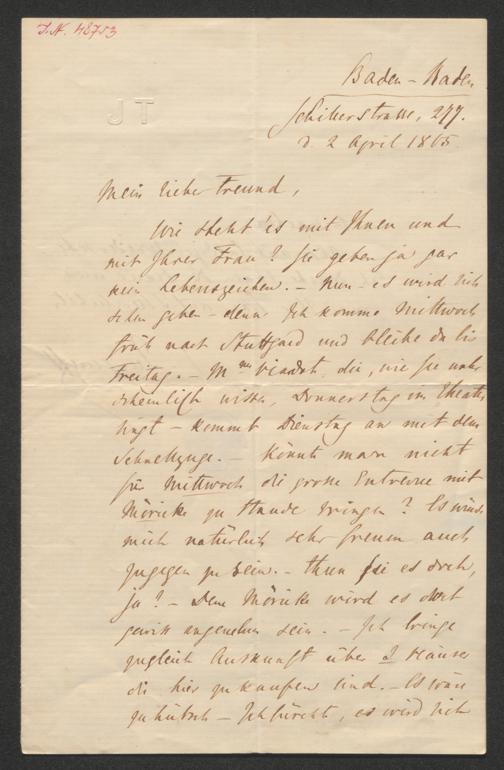 I.N. 48753
JT
Baden-Baden
Schillerstrasse, 277.
d. 2 April 1865
Mein lieber Freund,
Wie steht es mit Ihnen und
mit Ihrer Frau? Sie geben ja gar
kein Lebenszeichen. — Nun — es wird sich
schon geben — denn Ich komme Mittwoch
früh nach Stuttgard und bleibe da bis
Freitag. — Mme Viardot, die, wie Sie wahr-
scheinlich wissen, Donnerstag im Theater
singt — kommt Dienstag an mit dem
Schnellzuge. — Könnte man nicht
für Mittwoch die grosse Entrevue mit
Möricke zu Stande bringen? Es würde
mich natürlich sehr freuen auch
zugegen zu sein. — Thuen Sie es doch,
ja? — Dem Möricke wird es
gewiss angenehm sein. — Ich bringe
zugleich Auskunft über 2 Häuser
die hier zu kaufen sind. — Es wäre
zu hübsch — Ich fürchte, es wird sich